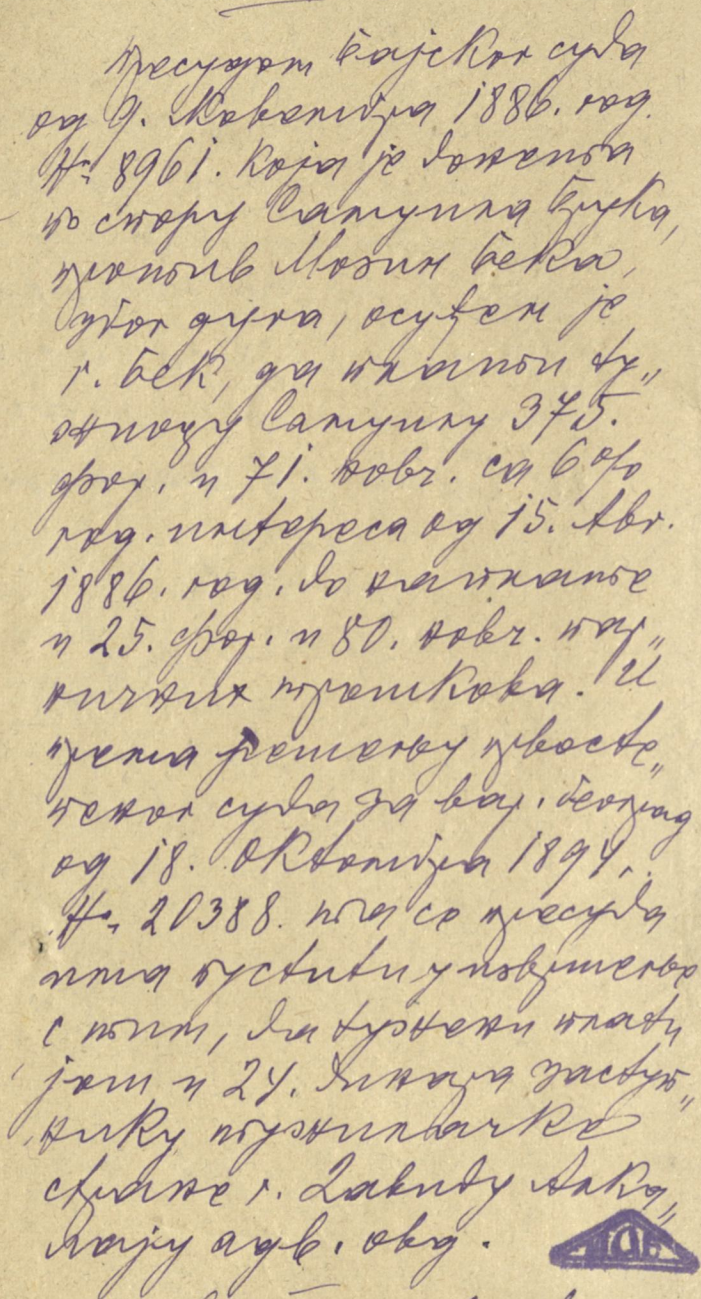 Пресудом бајског суда
од 9. Новембра 1886. год.
№ 8961. која је донешена
по спору Самуила Брука,
против Мозин Бека,
због дуга, осуђен је
г. Бек, да плати ту„
жиоцу Самуилу 375.
фор. и 71. новч. са 6%
год. интереса од 15. Авг.
1886. год. до наплате
и 25. фор. и 80. новч. пар„
ничних трошкова. И
према решењу првосте„
пеног суда за вар. Београд
од 18. Октомбра 1894.
№ 20388. та се пресуда
има пустити у извршење
с тим, да тужени плати
још и 24. динара заступ„
нику тужилачке
стране г. Давиду Алка„
лају адв. овд.